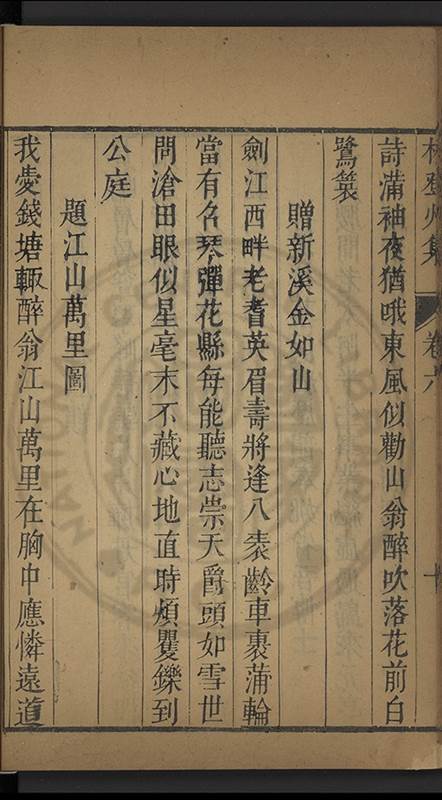 林登州集 卷六 十
詩滿袖夜猶哦東風似勸山翁醉吹落花前白
鷺簑
贈新溪金如山
劍江西畔老耆英眉壽將逢八袠齡車裹蒲輪
當有名琴彈花縣每能聽志崇天爵頭如雪世
問滄田眼似星毫末不藏心地直時煩矍鑠到
公庭
題江山萬里圖
我愛錢塘輙醉翁江山萬里在胸中應憐遠道